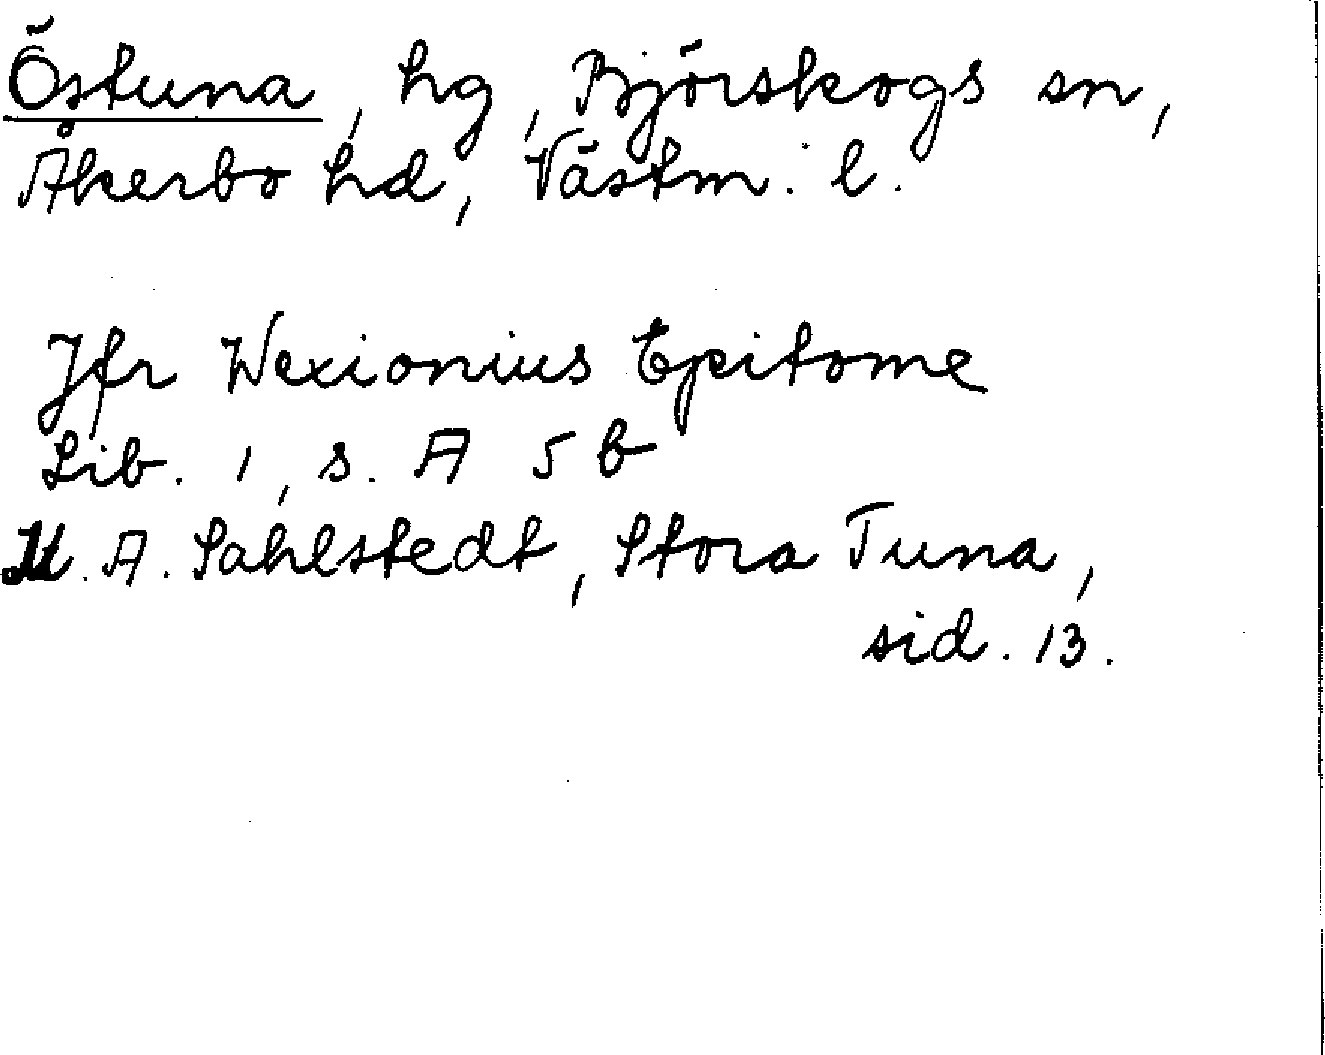 Östuna, hg, Björskogs sn,
Åkerbo hd, Västm. l.
Jfr Wexionius Epitome
Lib. 1, s. A 5 b
A. Sahlstedt, Stora Tuna,
sid. 13.